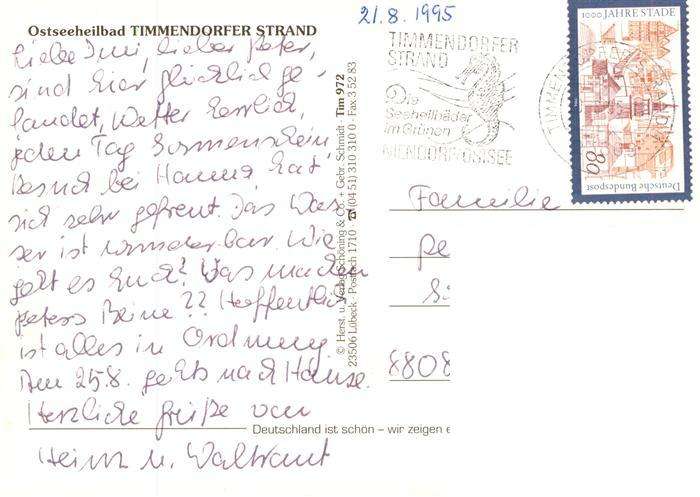 Ostseeheilbad TIMMENDORFER STRAND
Liebe Imi, lieber Peter,
sind hier glücklich ge-
landet, Wetter herrlich,
jeden Tag Sonnenschein,
Besuch bei Hanna hat
sich sehr gefreut. Das Was-
ser ist wunderbar. Wie
geht es Euch? Was machen
Peters Beine?? Hoffentlich
ist alles in Ordnung
Am 25.8. gehts nach Hause.
Herzliche Grüße von
Heinz u. Waltraut
© Herst. u. Verlag Schöning & Co. + Gebr. Schmidt Tim 972
23506 Lübeck · Postfach 1710 · ☎ (04 51) 310 310 0 · Fax 3 52 83
Deutschland ist schön – wir zeigen e
21.8.1995
TIMMENDORFER
STRAND
Die
Seeheilbäder
im Grünen
MENDORF/OSTSEE
1000 JAHRE STADE
80
Deutsche Bundespost
Familie
Pe
8808